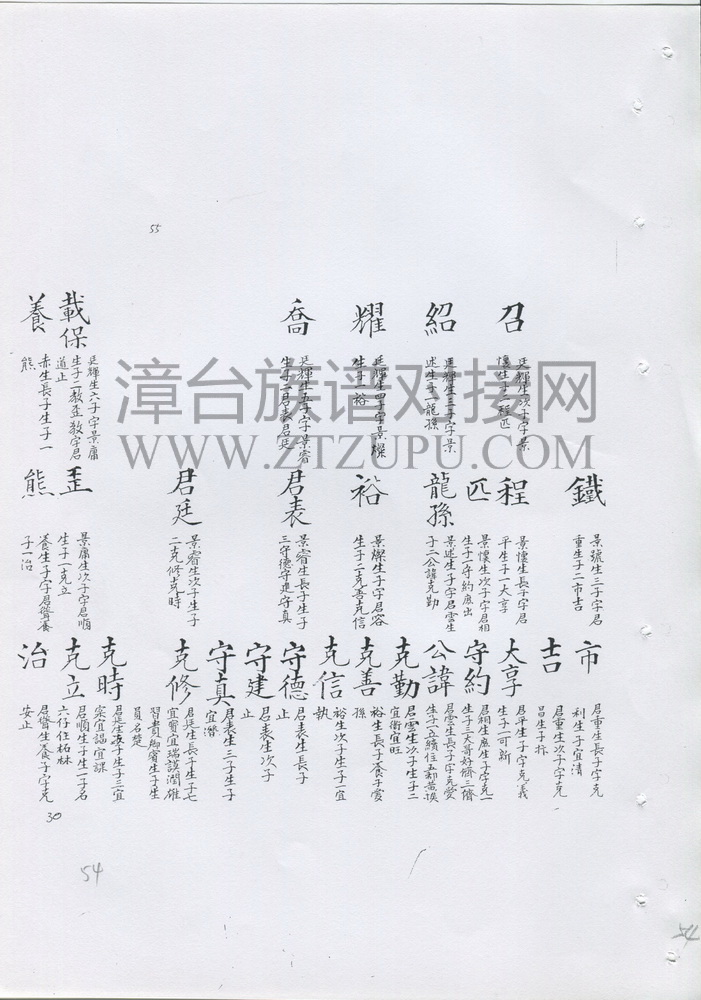 55
召
廷輝生次子字景
懷生子二程匹
紹
廷輝生三子字景
述生子一龍孫
耀
廷輝生四子字景燦
生子一裕
喬
廷輝生五子字景睿
生子二君表君廷
載保
廷輝生六子字景庸
生子二教歪教字君
道止
養
赤生長子生子一
熊
漳台族谱对接网
WWW.ZTZUPU.COM
鐵
景號生三子字君
重生子二市吉
程
景懷生長子字君
平生子一大享
匹
景懷生次子字君相
生子一守約庶出
龍孫
景述生子字君雲生
子二公諱克勤
裕
景燦生子字君容
生子二克善克信
君表
景睿生長子生子
三守德守建守真
君廷
景睿生次子生子
二克修克時
歪
景庸生次子字君順
生子一克立
熊
養生子字君賢養
子一治
市
君重生長子字克
利生子宜清
吉
君重生次子字克
昌生子祚
大享
君平生子字克義
生子一可新
守約
君相庶生子字克一
生子三大哥好儕三儕
公諱
君雲生長子字克愛
生子
克勤
君雲生次子生子二
宜衛宜旺
克善
裕生長子養子雲
孫
克信
裕生次子生子一宜
執
守德
君表生長子
止
守建
君表生次子
止
守真
君表生三子生子
宜濟
克修
君廷生長子生子七
宜賓宜瑞謨潤雄
員名楚
克時
君廷生次子生子三宜
宲宜謁宜謀
克立
君順生子生子一子名
六仔任柘林
治
君賢生養子字克
安止
30
54
54